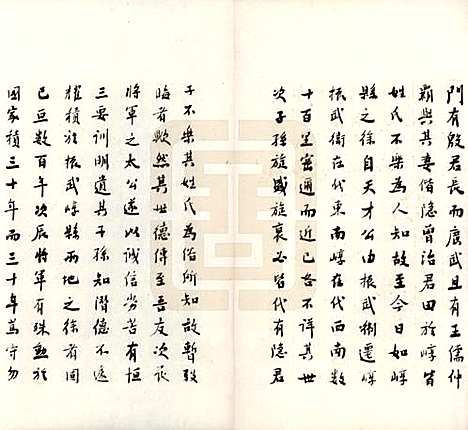 門有殷君長而廣武且有王儒仲
霸與其妻偕隱曾治君田於崞皆
姓氏不樂為人知故至今日如崞
縣之徐自天才公由振武衛遷崞
振武衛在代東南崞在代西南數
十百里密通而近已各不詳其世
次子孫旋盛旋衰必皆代有隱君
子不樂其姓氏為俗所知故暫發
晦者歟然其世德傳至吾友次辰
將軍之太公遂以誠信勞苦有恒
三要訓明道其子孫知潛德不遠
耀積於振武崞縣兩地之徐者固
已亘數百年次辰將軍有殊勳於
國家積三十年而三十年篤守勿